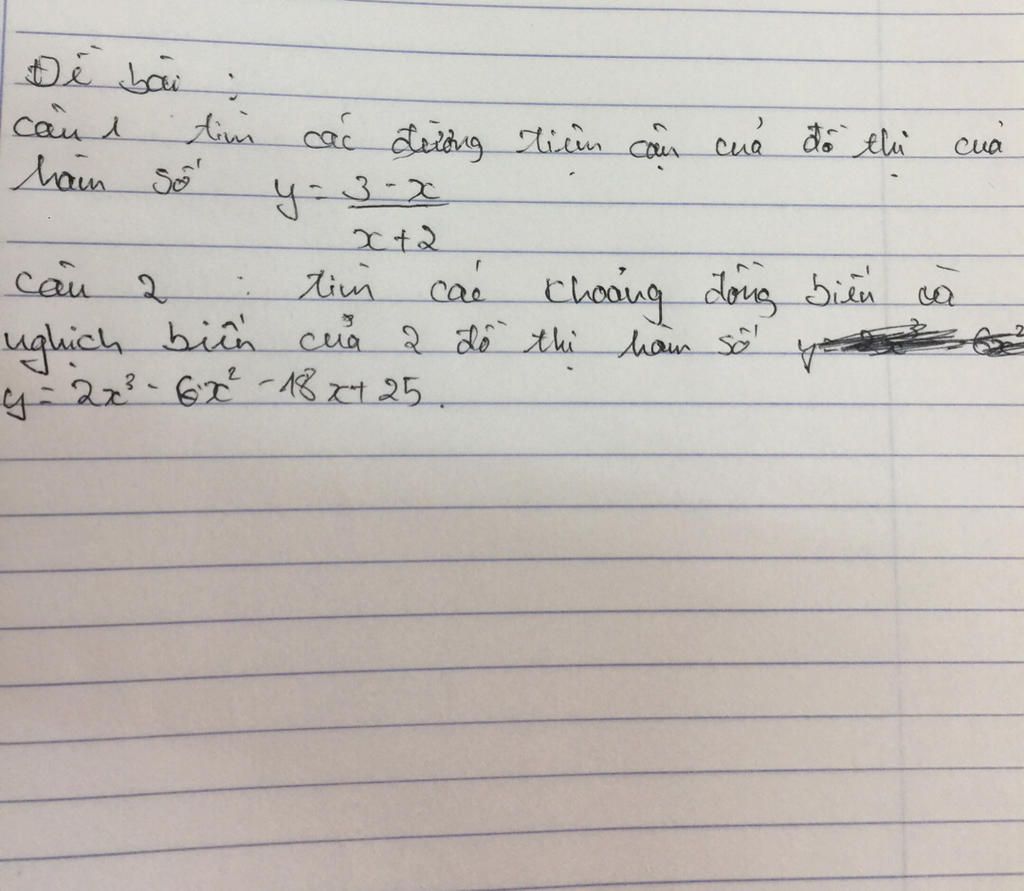 Đề bài :
câu 1 tìm các đường tiệm cận cuả đồ thị cuả
hàm số y = 3 - x
x + 2
câu 2 : tìm các khoảng đồng biến và
nghịch biến của 2 đồ thị hàm số y= - 6x²
y = 2x³ - 6x² - 18x + 25.